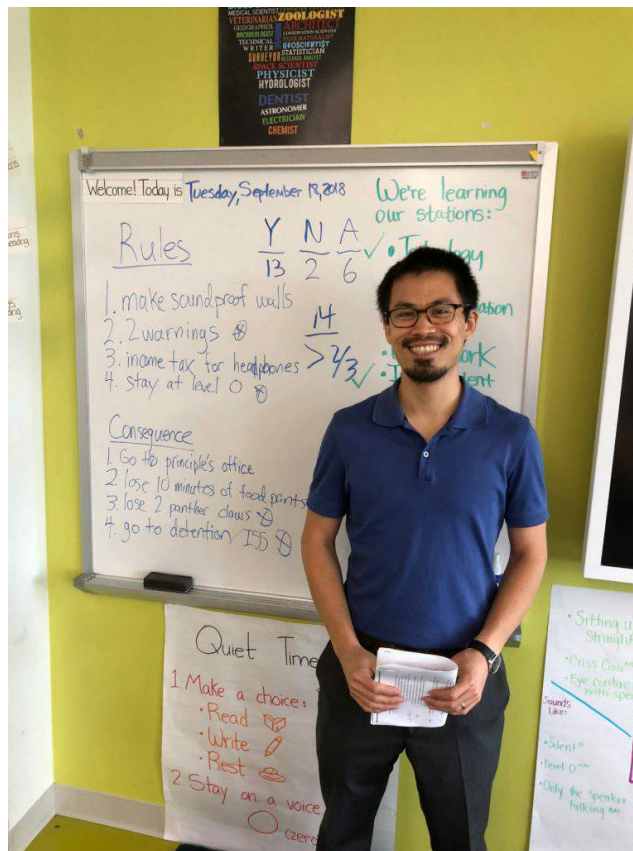 MEDICAL SCIENTIST
VETERINARIAN ZOOLOGIST
GEOGRAPHER ARCHITECT
ARCHEOLOGIST CONSERVATION SCIENTIST
TECHNICAL PARK NATURALIST
WRITER GEOSCIENTIST
SURVEYOR STATISTICIAN
RESEARCH ANALYST
SPACE SCIENTIST
PHYSICIST
HYDROLOGIST
DENTIST
ASTRONOMER
ELECTRICIAN
CHEMIST
Welcome! Today is Tuesday, September 18, 2018
Rules
1. make soundproof walls
2. 2 warnings
3. income tax for headphones
4. stay at level 0
Y N A
13 2 6
14
> 2/3
We're learning
our stations:
Consequence
1. Go to principle's office
2. lose 10 minutes of food prints
3. lose 2 panther claws
4. go to detention/ISS
Quiet Time
1. Make a choice:
• Read
• Write
• Rest
2. Stay on a voice
(zero
• Sitting u
Straight
• Criss Cross
• Eye contac
with spe
Sounds
Like:
• Silent
• Level 0
• Only the speaker
talking